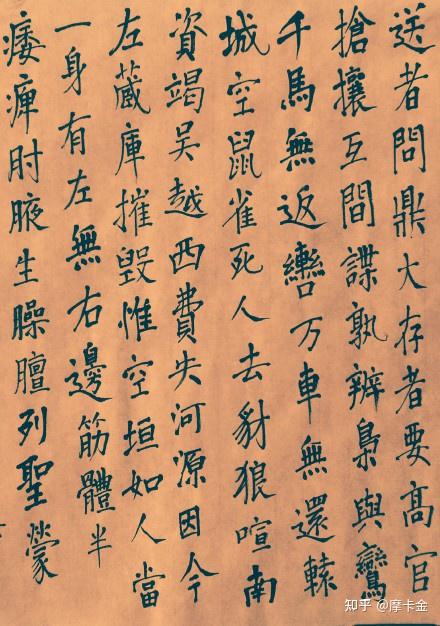 送者問鼎大存者要高官
搶攘互間諜孰辨梟與鸞
千馬無返轡万車無還轅
城空鼠雀死人去豺狼喧南
資竭吳越西費失河源因今
左藏庫摧毀惟空垣如人當
一身有左無右邊筋體半
痿痺肘腋生臊膻列聖蒙
知乎 @摩卡金